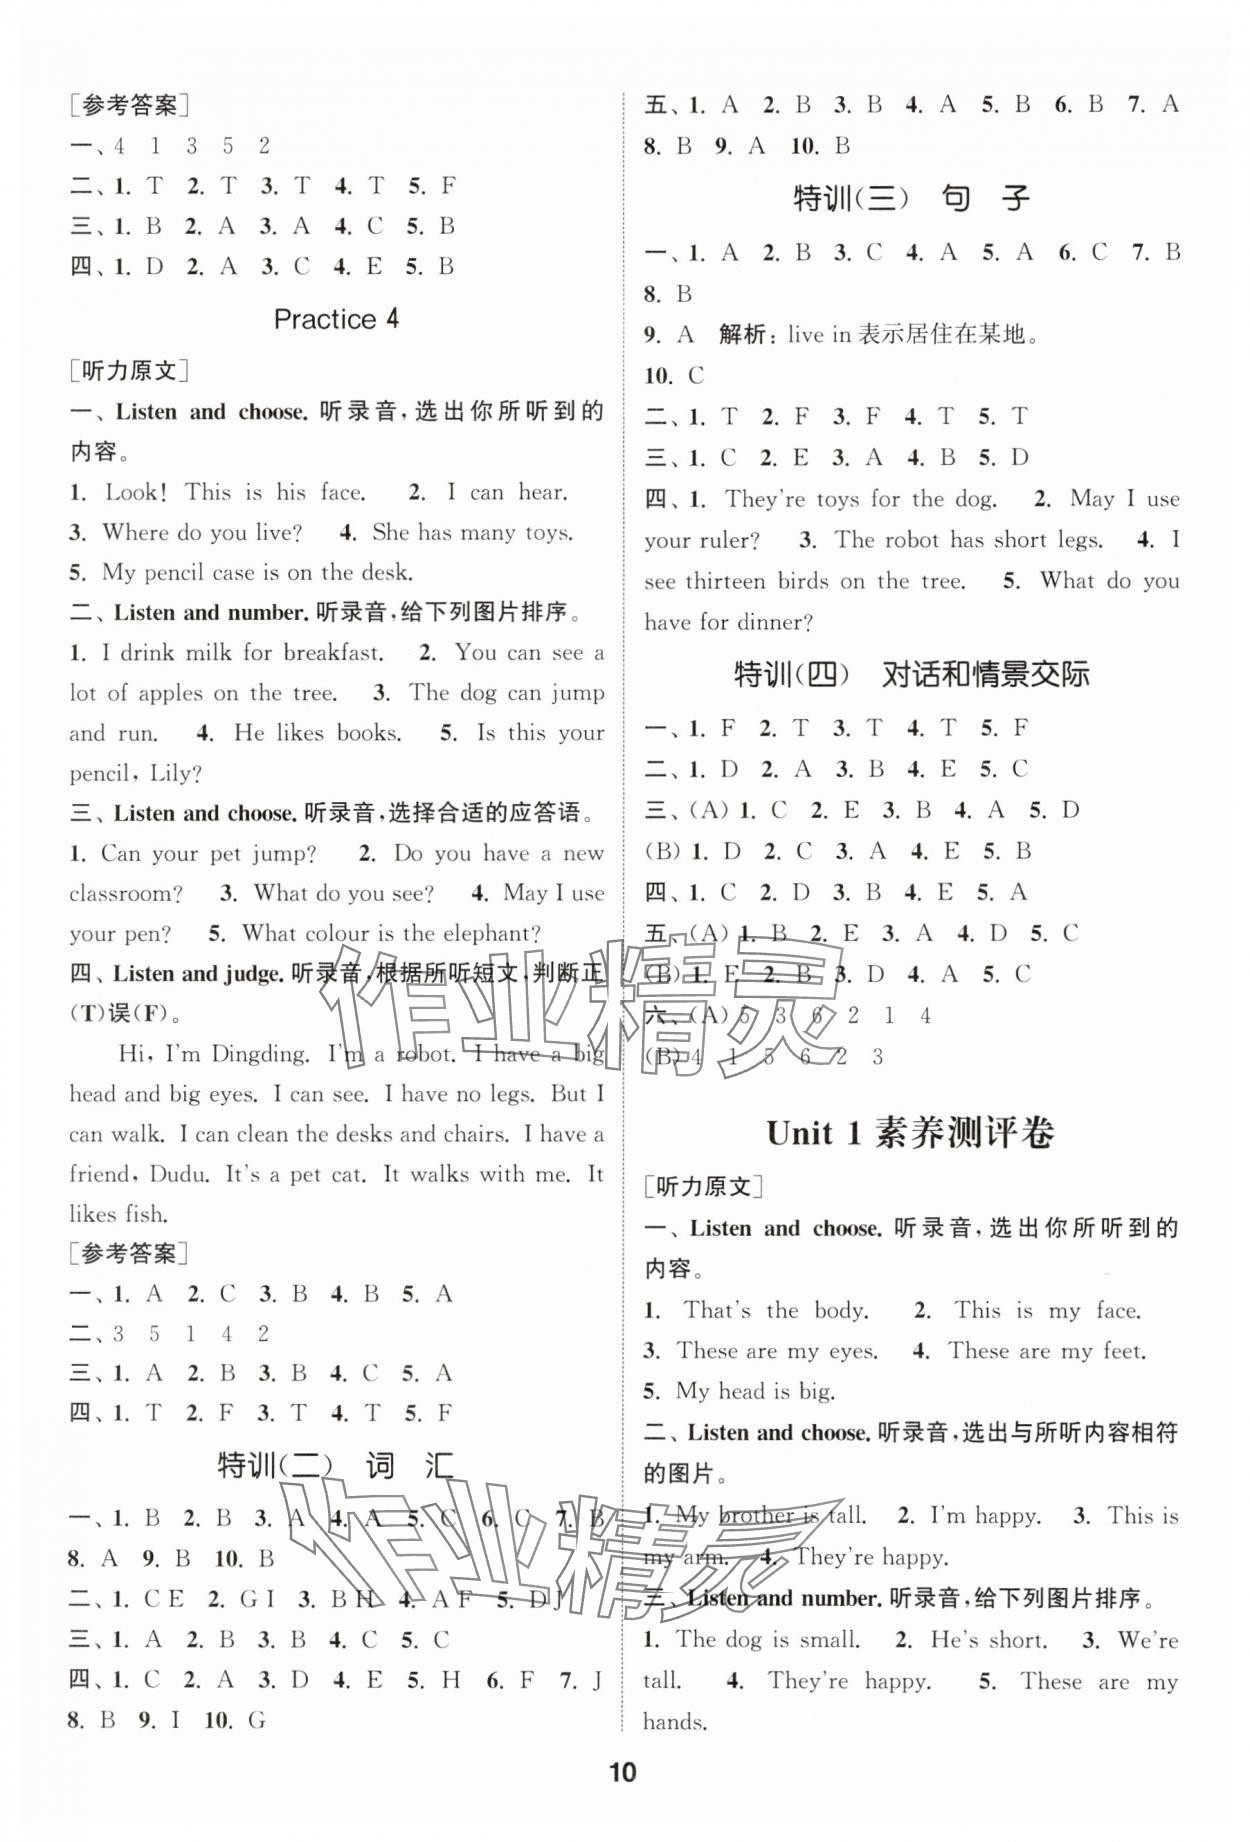 [参考答案]
一、4 1 3 5 2
二、1. T 2. T 3. T 4. T 5. F
三、1. B 2. A 3. A 4. C 5. B
四、1. D 2. A 3. C 4. E 5. B
Practice 4
[听力原文]
一、Listen and choose. 听录音,选出你所听到的
内容。
1. Look! This is his face. 2. I can hear.
3. Where do you live? 4. She has many toys.
5. My pencil case is on the desk.
二、Listen and number. 听录音,给下列图片排序。
1. I drink milk for breakfast. 2. You can see a
lot of apples on the tree. 3. The dog can jump
and run. 4. He likes books. 5. Is this your
pencil, Lily?
三、Listen and choose. 听录音,选择合适的应答语。
1. Can your pet jump? 2. Do you have a new
classroom? 3. What do you see? 4. May I use
your pen? 5. What colour is the elephant?
四、Listen and judge. 听录音,根据所听短文,判断正
(T)误(F)。
Hi, I'm Dingding. I'm a robot. I have a big
head and big eyes. I can see. I have no legs. But I
can walk. I can clean the desks and chairs. I have a
friend, Dudu. It's a pet cat. It walks with me. It
likes fish.
[参考答案]
一、1. A 2. C 3. B 4. B 5. A
二、3 5 1 4 2
三、1. A 2. B 3. B 4. C 5. A
四、1. T 2. F 3. T 4. T 5. F
特训(二) 词 汇
一、1. B 2. B 3. A 4. A 5. C 6. C 7. B
8. A 9. B 10. B
二、1. C E 2. G I 3. B H 4. A F 5. D J
三、1. A 2. B 3. B 4. C 5. C
四、1. C 2. A 3. D 4. E 5. H 6. F 7. J
8. B 9. I 10. G
五、1. A 2. B 3. B 4. A 5. B 6. B 7. A
8. B 9. A 10. B
特训(三) 句 子
一、1. A 2. B 3. C 4. A 5. A 6. C 7. B
8. B
9. A 解析:live in 表示居住在某地。
10. C
二、1. T 2. F 3. F 4. T 5. T
三、1. C 2. E 3. A 4. B 5. D
四、1. They're toys for the dog. 2. May I use
your ruler? 3. The robot has short legs. 4. I
see thirteen birds on the tree. 5. What do you
have for dinner?
特训(四) 对话和情景交际
一、1. F 2. T 3. T 4. T 5. F
二、1. D 2. A 3. B 4. E 5. C
三、(A) 1. C 2. E 3. B 4. A 5. D
(B) 1. D 2. C 3. A 4. E 5. B
四、1. C 2. D 3. B 4. E 5. A
五、(A) 1. B 2. E 3. A 4. D 5. C
(B) 1. E 2. B 3. D 4. A 5. C
六、(A) 5 3 6 2 1 4
(B) 4 1 5 6 2 3
Unit 1 素养测评卷
[听力原文]
一、Listen and choose. 听录音,选出你所听到的
内容。
1. That's the body. 2. This is my face.
3. These are my eyes. 4. These are my feet.
5. My head is big.
二、Listen and choose. 听录音,选出与所听内容相符
的图片。
1. My brother is tall. 2. I'm happy. 3. This is
my arm. 4. They're happy.
三、Listen and number. 听录音,给下列图片排序。
1. The dog is small. 2. He's short. 3. We're
tall. 4. They're happy. 5. These are my
hands.
10
作业精灵
作业精灵